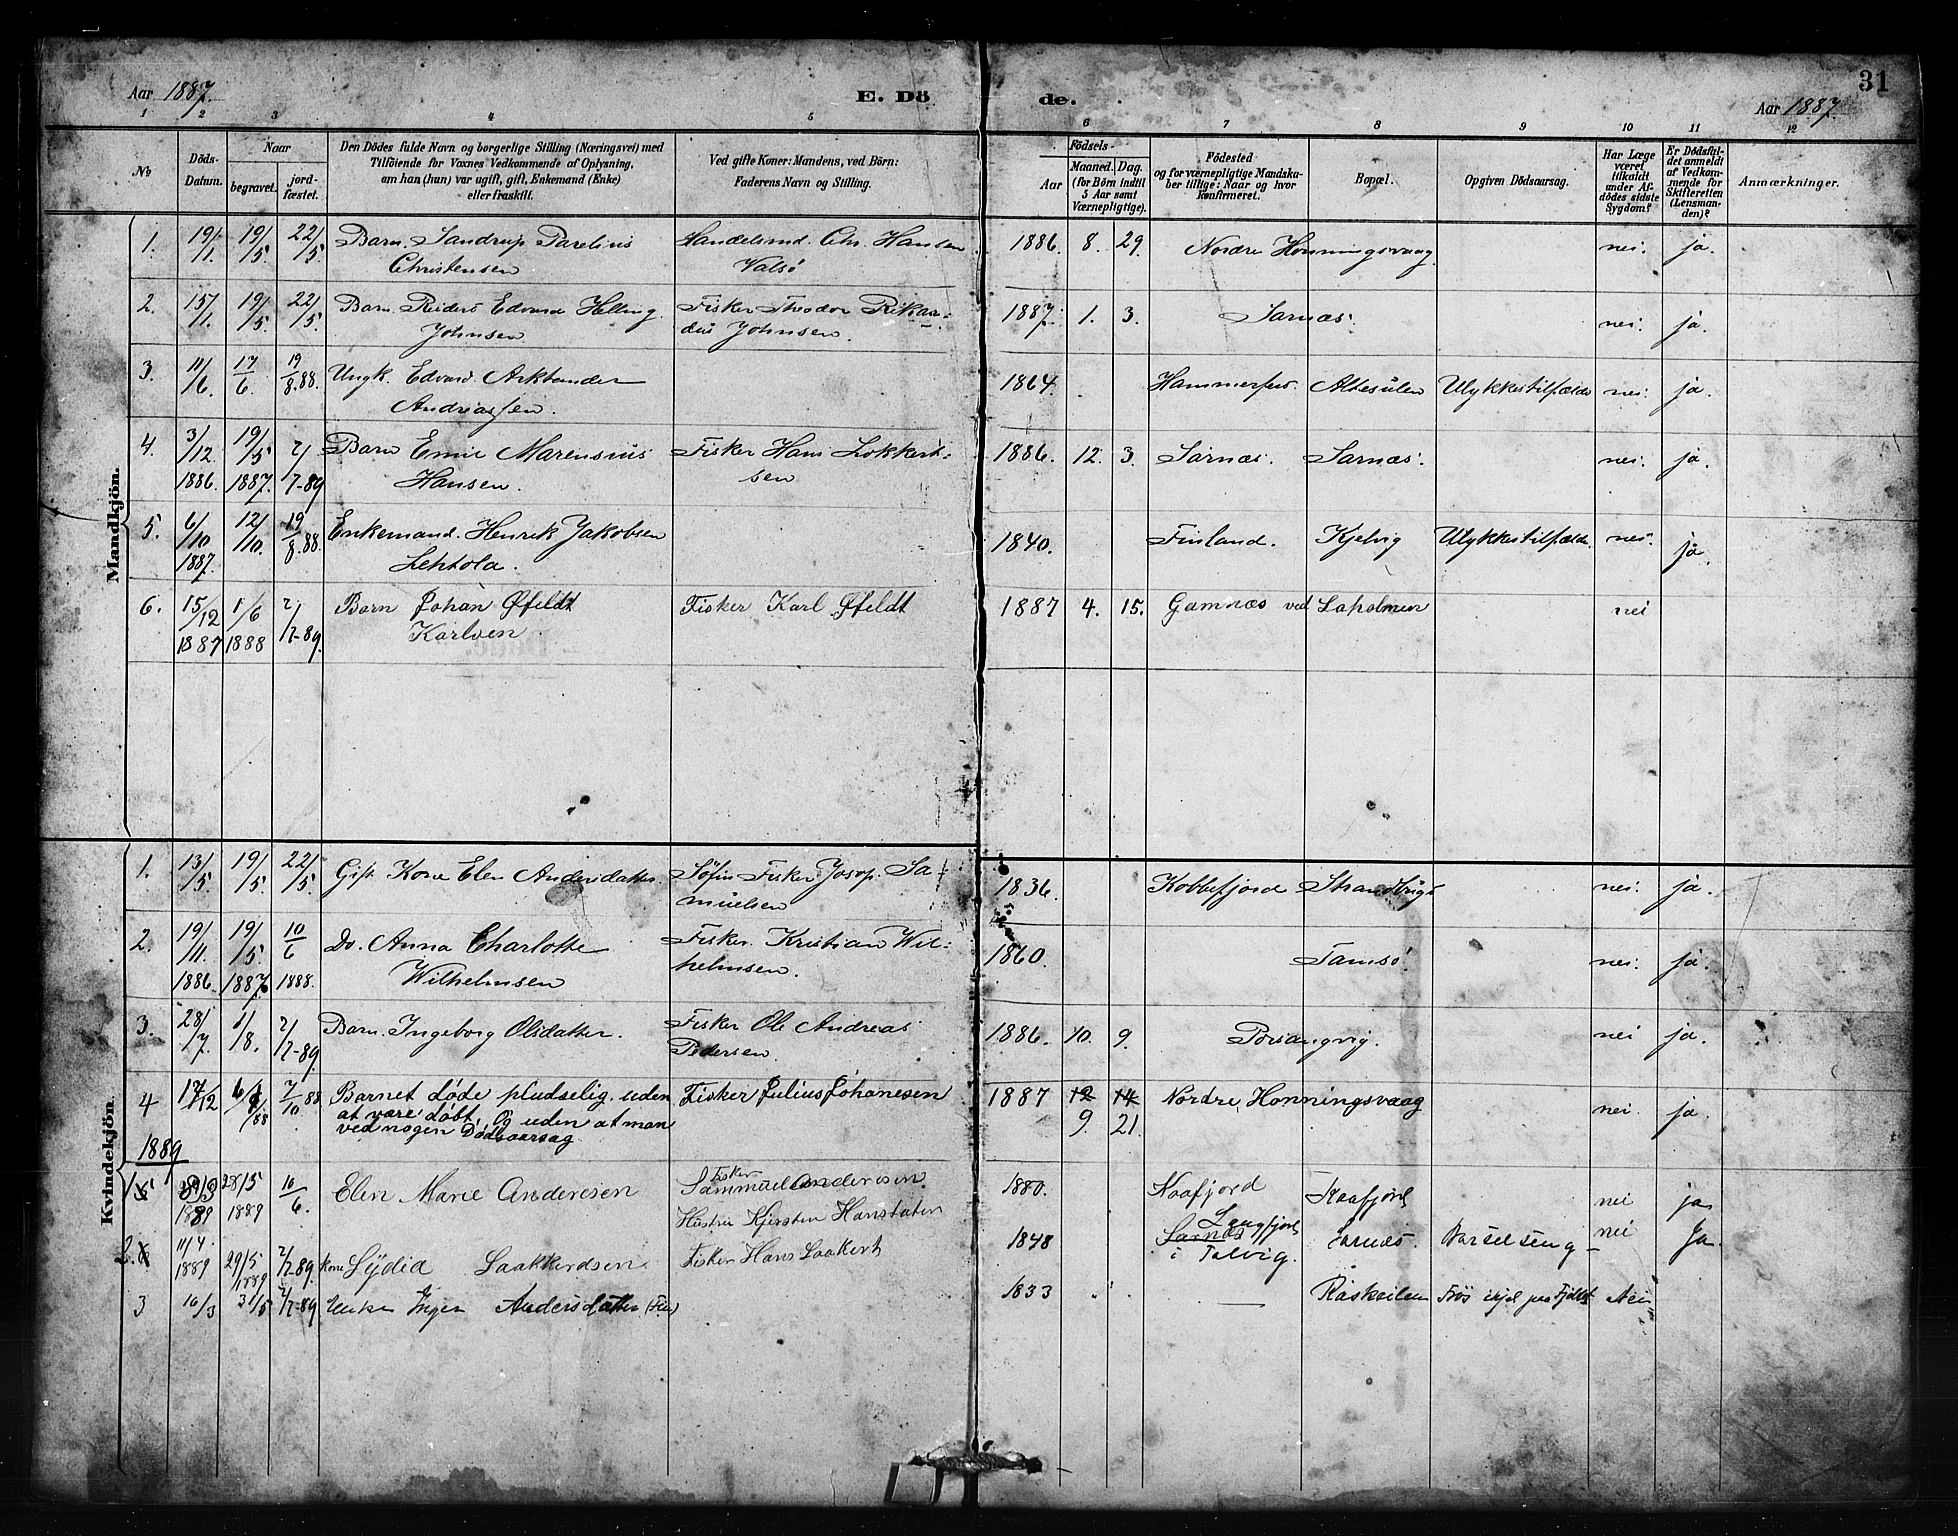 Aar 1887.
E. Dö
de.
Aar 1887.
31
1 2 3 4 5 6 7 8 9 10 11 12
No
Döds-Datum.
Naar
begravet.
jord-fæstet.
Den Dödes fulde Navn og borgerlige Stilling (Næringsvei) med
Tilföiende for Voxnes Vedkommende af Oplysning,
om han (hun) var ugift, gift, Enkemand (Enke)
eller fraskilt.
Ved gifte Koner: Mandens, ved Börn:
Faderens Navn og Stilling.
Födsels-
Aar
Maaned.
Dag.
(for Börn indtil
5 Aar samt
Værnepligtige).
Födested
og for værnepligtige Mandska-
ber tillige: Naar og hvor
konfirmeret.
Bopæl.
Opgiven Dödsaarsag.
Har Læge
været
tilkaldt
under Af-
dödes sidste
Sygdom?
Er Dödsfal-
det anmeldt
af Vedkom-
mende for
Skifteretten
(Lensman-
den)?
Anmærkninger.
Mandkjön.
1. 19/1. 19/5. 22/5. Barn. Sandrup Parelius Handelsmd. Chr. Hansen 1886. 8. 29. Nordre Honningsvaag. nei. ja.
Christensen Valsö
2. 15/1. 19/5. 22/5. Barn. Edvard Fisker Theodor Rikar- 1887. 1. 3. Sarnæs. nei. ja.
Johnsen Johnsen.
3. 11/6. 17/6. 19/8.88. Ungk. Edvard Andreassen. 1864. Altesulen Ulykkestilfælde nei. ja
4. 3/12 1886. 19/5 1887. 2/7-89 Barn Emil Marensius Fisker Hans Lokkert- 1886. 12. 3. Sarnæs. Sarnæs. nei. ja.
Hansen. sen
5. 6/10 1887. 12/10. 19/8.88. Enkemand. Henrik Jakobsen 1840. Finland. Kjelvig Ulykkestilfælde. nei. ja.
Lehtola.
6. 15/12 1887 1/6 1888 2/7-89. Barn Johan Øfeldt Fisker Karl Øfeldt 1887 4. 15. Gamnæs ved Laholmen nei
Karlsen.
Kvindekjön.
1. 13/5. 19/5. 22/5. Gift Kone Elen Andersdatter. Fisker Josop. Sa- 1836. Kobbefjord nei. ja.
muelsen
2. 19/11. 1886. 19/5. 1887. 10/6 1888. Do. Anna Charlotte Fisker. Kristian Wil- 1860. Tamsö. nei. ja.
Wilhelmsen helmsen.
3. 28/7. 1/8. 2/7-89. Barn. Ingeborg Olsdatter. Fisker Ole Andreas 1886. 10. 9. Porsangvig. nei ja.
Pedersen.
4 17/12 88 7/10 88 Barnet døde pludselig uden Fisker Julius Johanesen 1887 12 14 Nordre Honningsvaag nei. ja.
at være døbt. Og uden at man 9. 21.
ved nogen Dødsaarsag
1889
1. 1889 28/5 1889 10/6. Elen Marie Andersen Fisker Sammuel Andersen. 1880. Kaafjord nei ja
Hustru Kjersten
2. 11/4. 1889 29/5 1889 2/7-89. kone Lydia Laakkerdsen Fisker Hans Laakert 1848 Langfjord Sarnæs i Talvig. Sarnæs. Barselseng nei Ja.
3 16/3 31/5 2/7-89 Enke Inger Andersdatter 1833 Nei